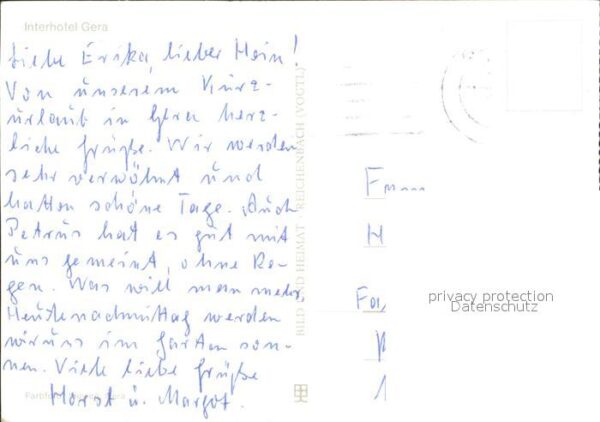 Interhotel Gera
Liebe Erika, lieber Hein!
Von unserem Kurz-
urlaub in Gera herz-
liche Grüße. Wir werden
sehr verwöhnt und
hatten schöne Tage. Auch
Petrus hat es gut mit
uns gemeint, ohne Re-
gen. Was will man mehr,
Heutenachmittag werden
wir uns im Garten son-
nen. Viele liebe Grüße
Horst u. Margot.
BILD UND HEIMAT REICHENBACH (VOGTL)
privacy protection
Datenschutz